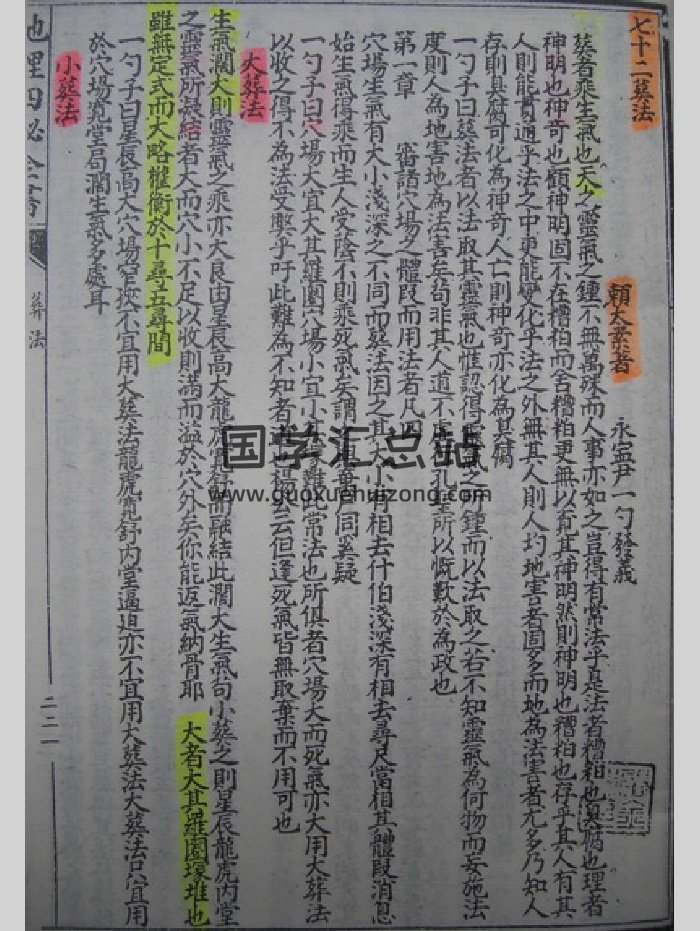 七十二葬法
賴太素著
永寧尹一勺發義
葬者乘生氣也天之靈氣之鍾不無萬殊而人事亦如之豈得有常法乎是法者糟粕也臭腐也理者
神明也神奇也顧神明固不在糟粕而舍糟粕更無以覓其神明然則神明也糟粕也存乎其人有其
人則能貫通乎法之中更能變化乎法之外無其人則人圴地害者固多而地為法害者尤多乃知人
存則臭腐可化為神奇人亡則神奇亦化為臭腐
一勺子曰葬法者以法取其靈氣也惟認得靈氣之所鍾而以法取之若不知靈氣為何物而妄施法
度則人為地害地為法害矣苟非其人道不虛行孔聖所以慨歎於為政也
第一章 審諸穴場之體段而用法者凡四
穴場生氣有大小淺深之不同而葬法因之其大小有相去什伯淺深有相去尋尺當相其體段消息
始生氣得乘而生人受陰不則乘死氣矣謂與棄尸同奚疑
一勺子曰穴場大宜大其羅圍穴場小宜小其塚堆此常法也所俱者穴場大而死氣亦大用大葬法
以收之得不為法受弊乎吁此難為不知者道也楊公云但逢死氣皆無取棄而不用可也
大葬法
生氣濶大則靈氣之乘亦大良由星辰高大龍虎寬舒而融結此濶大生氣句小葬之則星辰龍虎內堂
之靈氣所凝結者大而穴小不足以收則滿而溢於穴外矣你能返氣納骨耶 大者大其羅圍塚堆也
雖無定式而大略權衡於十尋五尋間
一勺子曰星辰高大穴場窄狹不宜用大葬法龍虎寬舒內堂逼迫亦不宜用大葬法大葬法只宜用
於穴場寬堂局濶生氣多處耳
小葬法
地理四秘全書
葬法
二二一
国学汇总站
www.guoxuehuizong.com